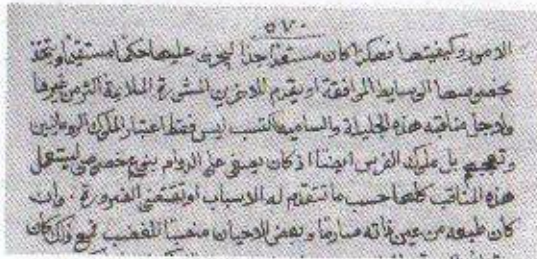 ٥٧٠
الامور وكيفيتها فهكذا كان مستعدا جدا ليجرى عليها حكما مستقيما ويتخذ
بخصوصها الوسايط الموافقة او يقدم للاخرين المشورة الملايمة اكثر من غيرها
ولاجل مناقبه هذه الجليلة والسامية اكتسب ليس فقط اعتبار الملوك الرومانيين
بل ملوك الفرس ايضا اذ كان يصغى على الدوام بنوع خصوصى ليستعمل
هذه المناقب كلها حسب ما تتقدم له الاسباب او تقتضى الضرورة . وان
كان طبعه من عين ذاته صارما وبعض الاحيان منصبا للغضب فمع ذلك كان